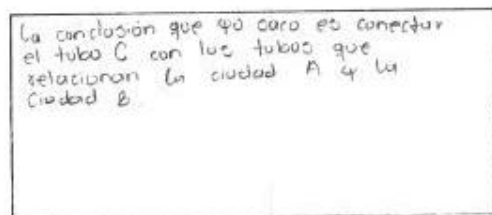 La conclusión que yo saco es conectar
el tubo C con los tubos que
relacionan la ciudad A y la
Ciudad B